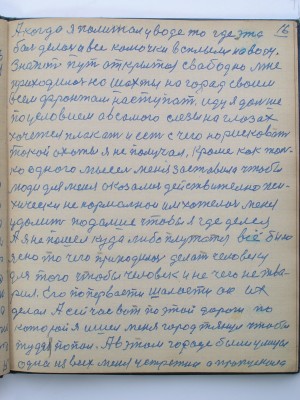 А когда я полистал у воде то где эта 16
был делал а все комочки всплыли на воду.
Значит пут открытой свободно мне
приходилось но шахты на город своим
всем фронтом наступает, иду я дальше
по условием а самого слезы на глазах
хочется плакат и сет с чего но рисковат
такой охоты я не получал, кроме как тол-
ко одного мысем меня заставила чтобы
люди для меня оказали действительно
и не нормалной им хотелось меня
удолит подалше чтобы я где делся
А я не пошел куда либо путатся всё было
ясно то чего приходилось делат человеку
для того чтобы человек и не чего не тва-
рил. Его по первасти шалости он их
делал А сейчас вот по этой дороги по
которой я шел меня город тянул чтобы
туда попал. А в этом городе были улицы
одна из всех меня встретила а пропускала